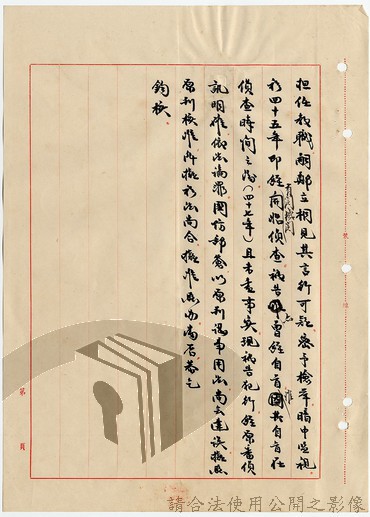 担任教職嗣鄭立相見其言行可疑密予檢舉暗中監視
於四十五年即經有關機關開始偵查被告曾經自首惟其自首在
偵查時間之後(四十七年)且未查事實現被告犯行經原審偵
訊明確依法論罪國防部簽以原判認事用法尚無違誤擬照
原判核准所擬於法尚合擬准照辦當否恭乞
鈞核
第 頁
請合法使用公開之影像